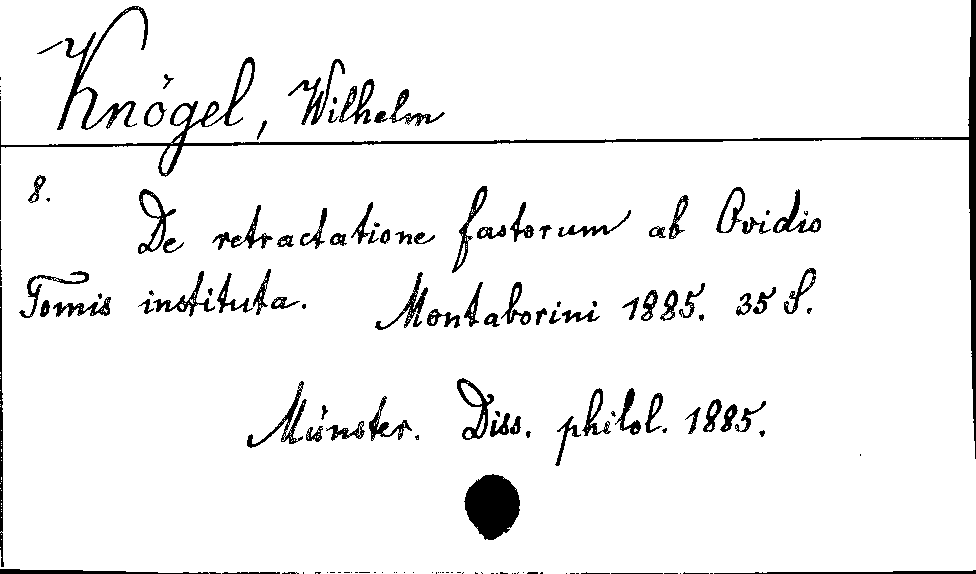 Knögel, Wilhelm
8.
De retractatione fastorum ab Ovidio
Tomis instituta. Montaborini 1885. 35 S.
Münster. Diss. philol. 1885.